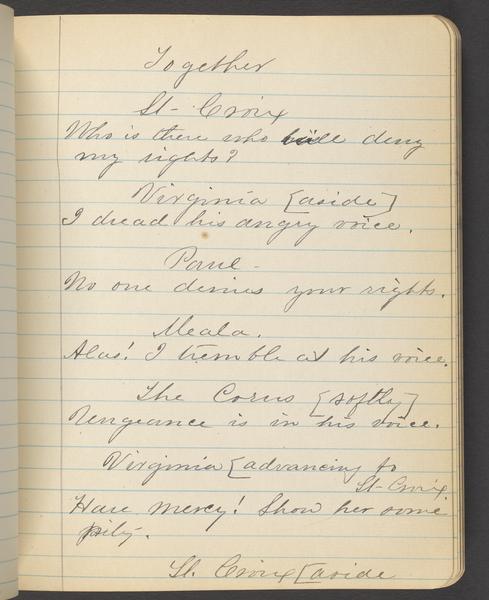 Together
St- Croix
Who is there who will deny
my rights?
Virginia [aside]
I dread his angry voice.
Paul -
No one denies your rights.
Meala.
Alas! I tremble at his voice.
The Corus [softly]
Vengeance is in his voice.
Virginia [advancing to
St- Croix.
Have mercy! Show her some
pity.
St. Croix [aside